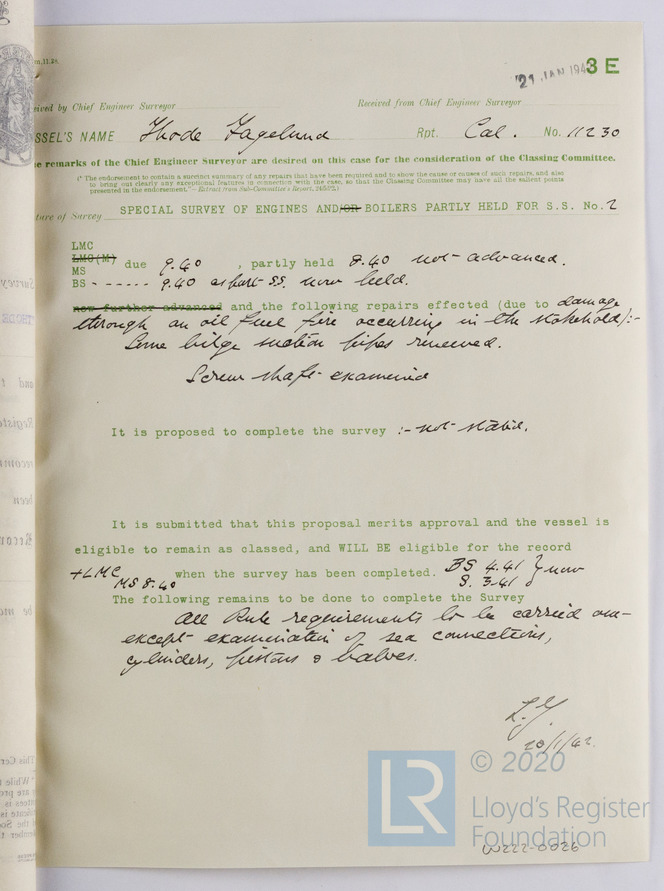 21 JAN 194
3 E
eived by Chief Engineer Surveyor
Received from Chief Engineer Surveyor
SSEL'S NAME Thode Fagelund Rpt. Cal. No. 11230
e remarks of the Chief Engineer Surveyor are desired on this case for the consideration of the Classing Committee.
(* The endorsement to contain a succinct summary of any repairs that have been required and to show the cause or causes of such repairs, and also
to bring out clearly any exceptional features in connection with the case, so that the Classing Committee may have all the salient points
presented in the endorsement."— Extract from Sub-Committee's Report,
ture of Survey SPECIAL SURVEY OF ENGINES AND/OR BOILERS PARTLY HELD FOR S.S. No. 2
LMC
LMC(M)
MS due 9.40 , partly held 8.40 not advanced.
BS - - - - - - 9.40 as part SS. now held.
now further advanced and the following repairs effected (due to damage
through an oil fuel fire occurring in the stokehold):-
Some bilge suction pipes renewed.
Screw shaft examined
It is proposed to complete the survey :- not stated.
It is submitted that this proposal merits approval and the vessel is
eligible to remain as classed, and WILL BE eligible for the record
+LMC MS 8.40 when the survey has been completed. BS 4.41 S. 3.41 } now
The following remains to be done to complete the Survey
All Rule requirements to be carried out
except examination of sea connections,
cylinders, pistons & valves.
20/1/42.
© 2020
LR
Lloyd's Register
Foundation
W222-0026